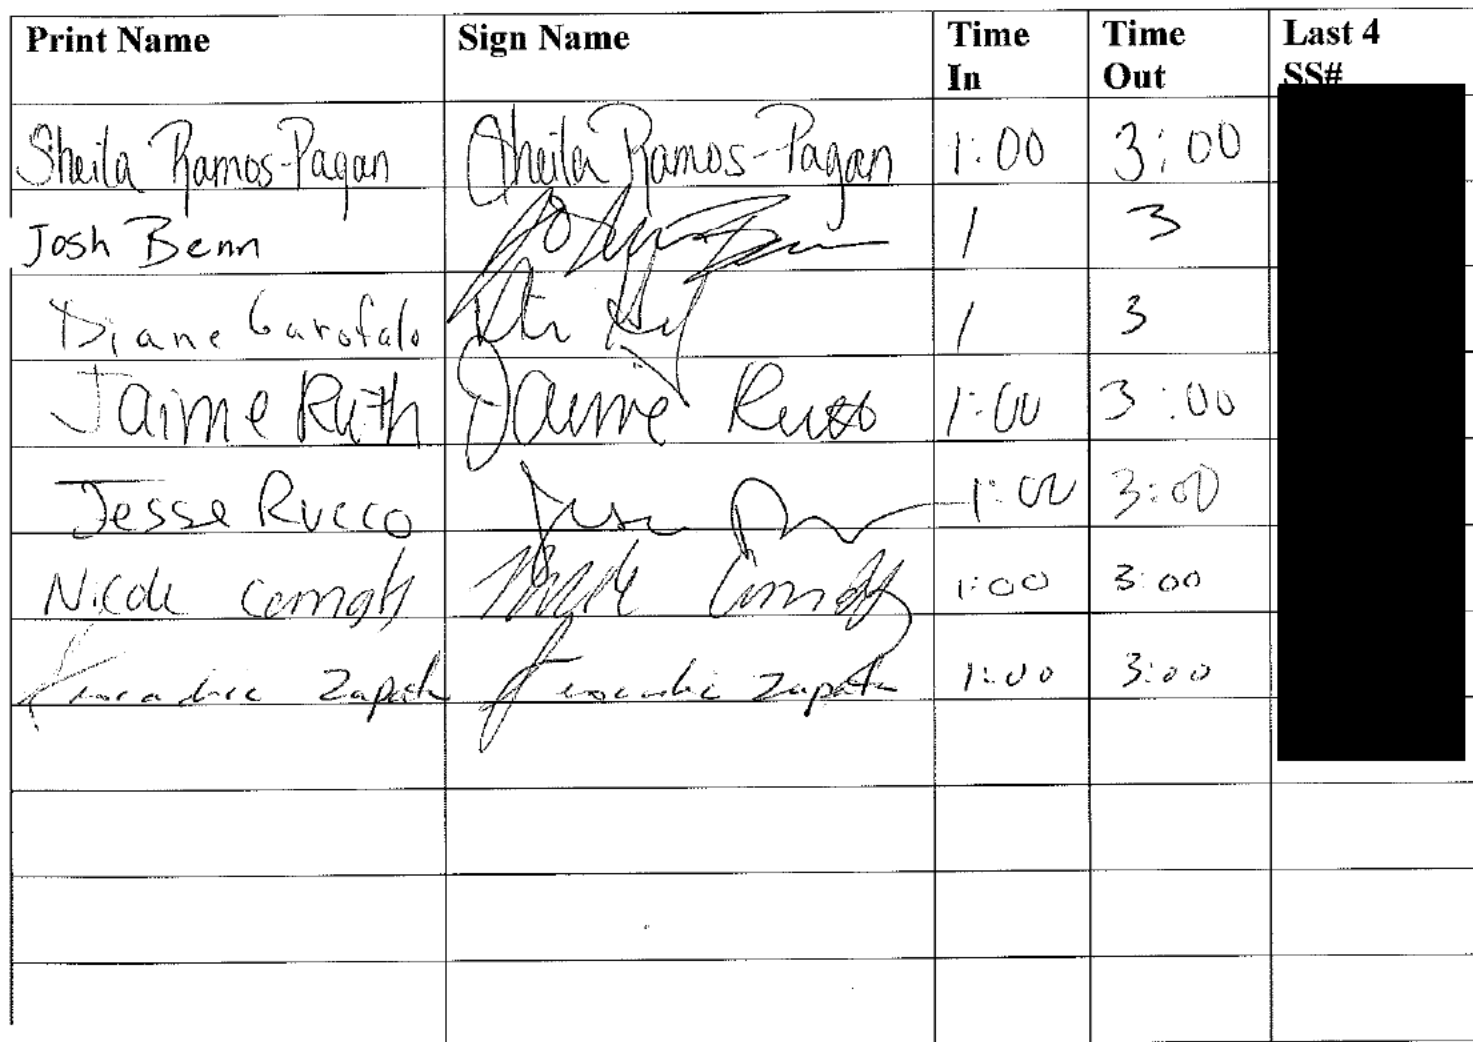 Print Name Sign Name Time In Time Out Last 4 SS#
Sheila Ramos-Pagan Sheila Ramos-Pagan 1:00 3:00
Josh Benn 1 3
Diane Garofalo 1 3
Jaime Ruth Jaime 1:00 3:00
Jesse Rucco Jesse 1:00 3:00
Nicole Nicole 1:00 3:00
Zapata Zapata 1:00 3:00